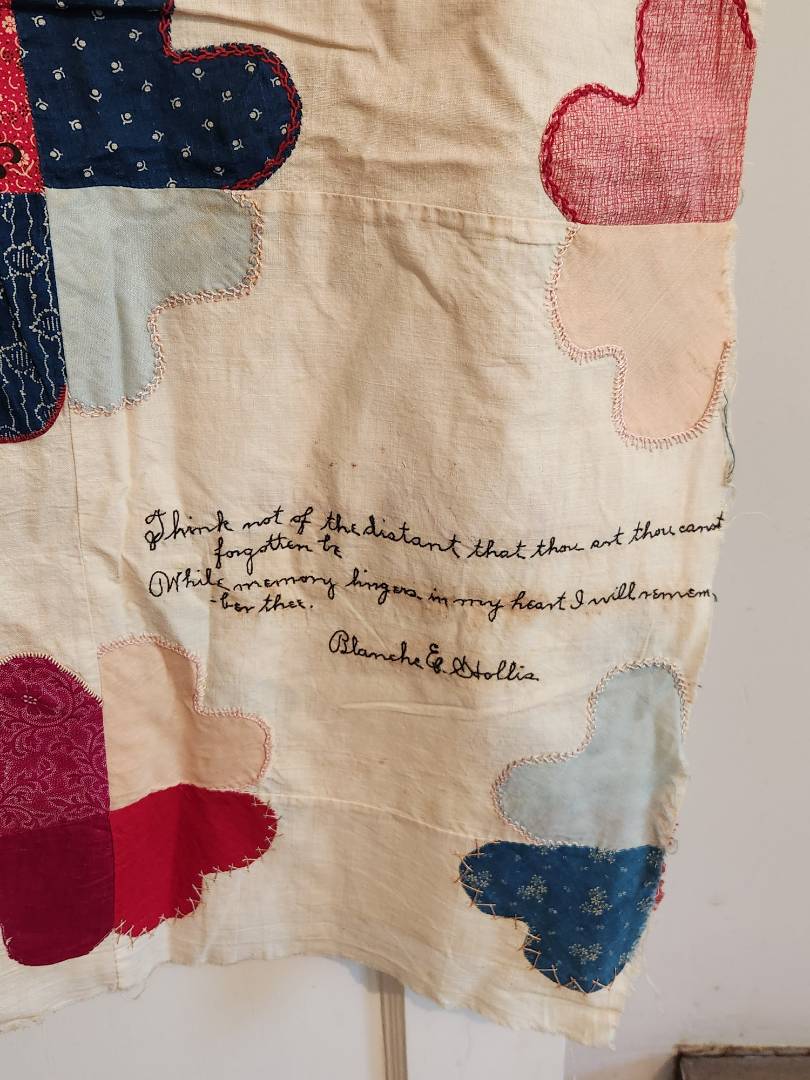 Think not of the distant that thou art thou canst
forgotten be
While memory lingers in my heart I will remem,
-ber thee.
Blanche E. Hollis